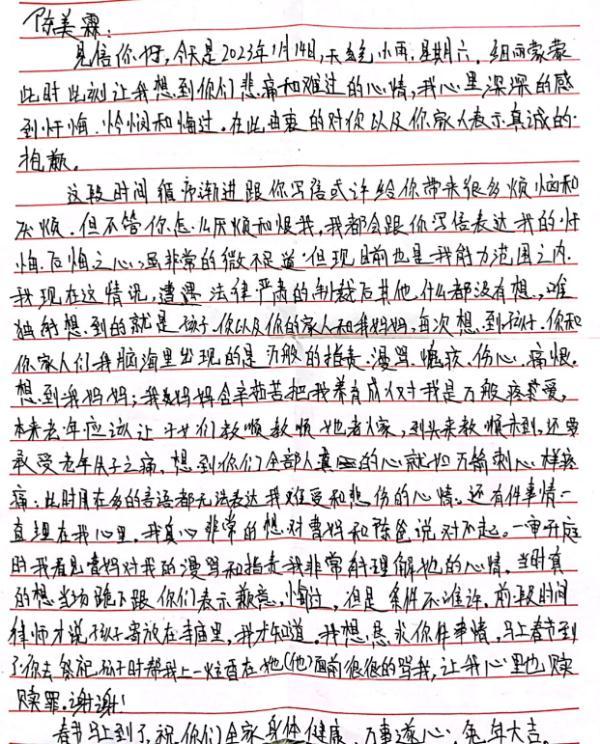 陈美霖:
见信你好,今天是2023年1月14日,天气小雨,星期六,细雨蒙蒙
此时此刻让我想到你们悲痛和难过的心情,我心里深深的感
到忏悔、怜悯和悔过。在此由衷的对你以及你家人表示真诚的
抱歉。
这段时间循序渐进跟你写信或许给你带来很多烦恼和
厌烦。但不管你怎么厌烦和恨我,我都会跟你写信表达我的忏
悔、后悔之心,虽非常的微不足道,但现目前也是我能力范围之内
我现在这情况,遭遇法律严肃的制裁后其他什么都没有想,唯
独能想到的就是孩子、你以及你的家人和我妈妈,每次想到孩子、你和
你家人们我脑海里出现的是万般的指责、漫骂、愤疾、伤心、痛恨。
想到我妈妈;我妈妈含辛茹苦把我养育成人对我是万般疼爱,
本来老年应该让子女们孝顺孝顺她老人家,到头来孝顺未到,还要
承受老年失子之痛,想到你们全部人真的心就如万箭刺心一样疼
痛;此时用在多的言语都无法表达我难受和悲伤的心情。还有件事情一
直埋在我心里,我真心非常的想对曹妈和陈爸说对不起。一审开庭
时我看见曹妈对我的漫骂和指责我非常能理解她的心情,当时真
的想当场跪下跟你们表示歉意、悔过,但是条件不准许,前段时间
律师才说孩子寄放在寺庙里,我才知道,我想恳求你件事情,马上春节到
了你去祭祀孩子时帮我上一炷香在她(他)面前很很的骂我,让我心里也赎
赎罪。谢谢!
春节马上到了,祝你们全家身体健康、万事遂心、兔年大吉。